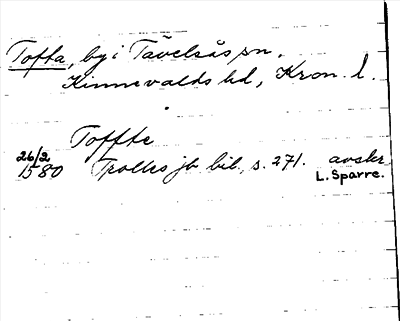 Tofta, by i Tävelsås sn.
Kinnevalds hd, Kron. l.
Toffte
26/2 1580 Trolles jb bil., s. 271. avskr.
L. Sparre.